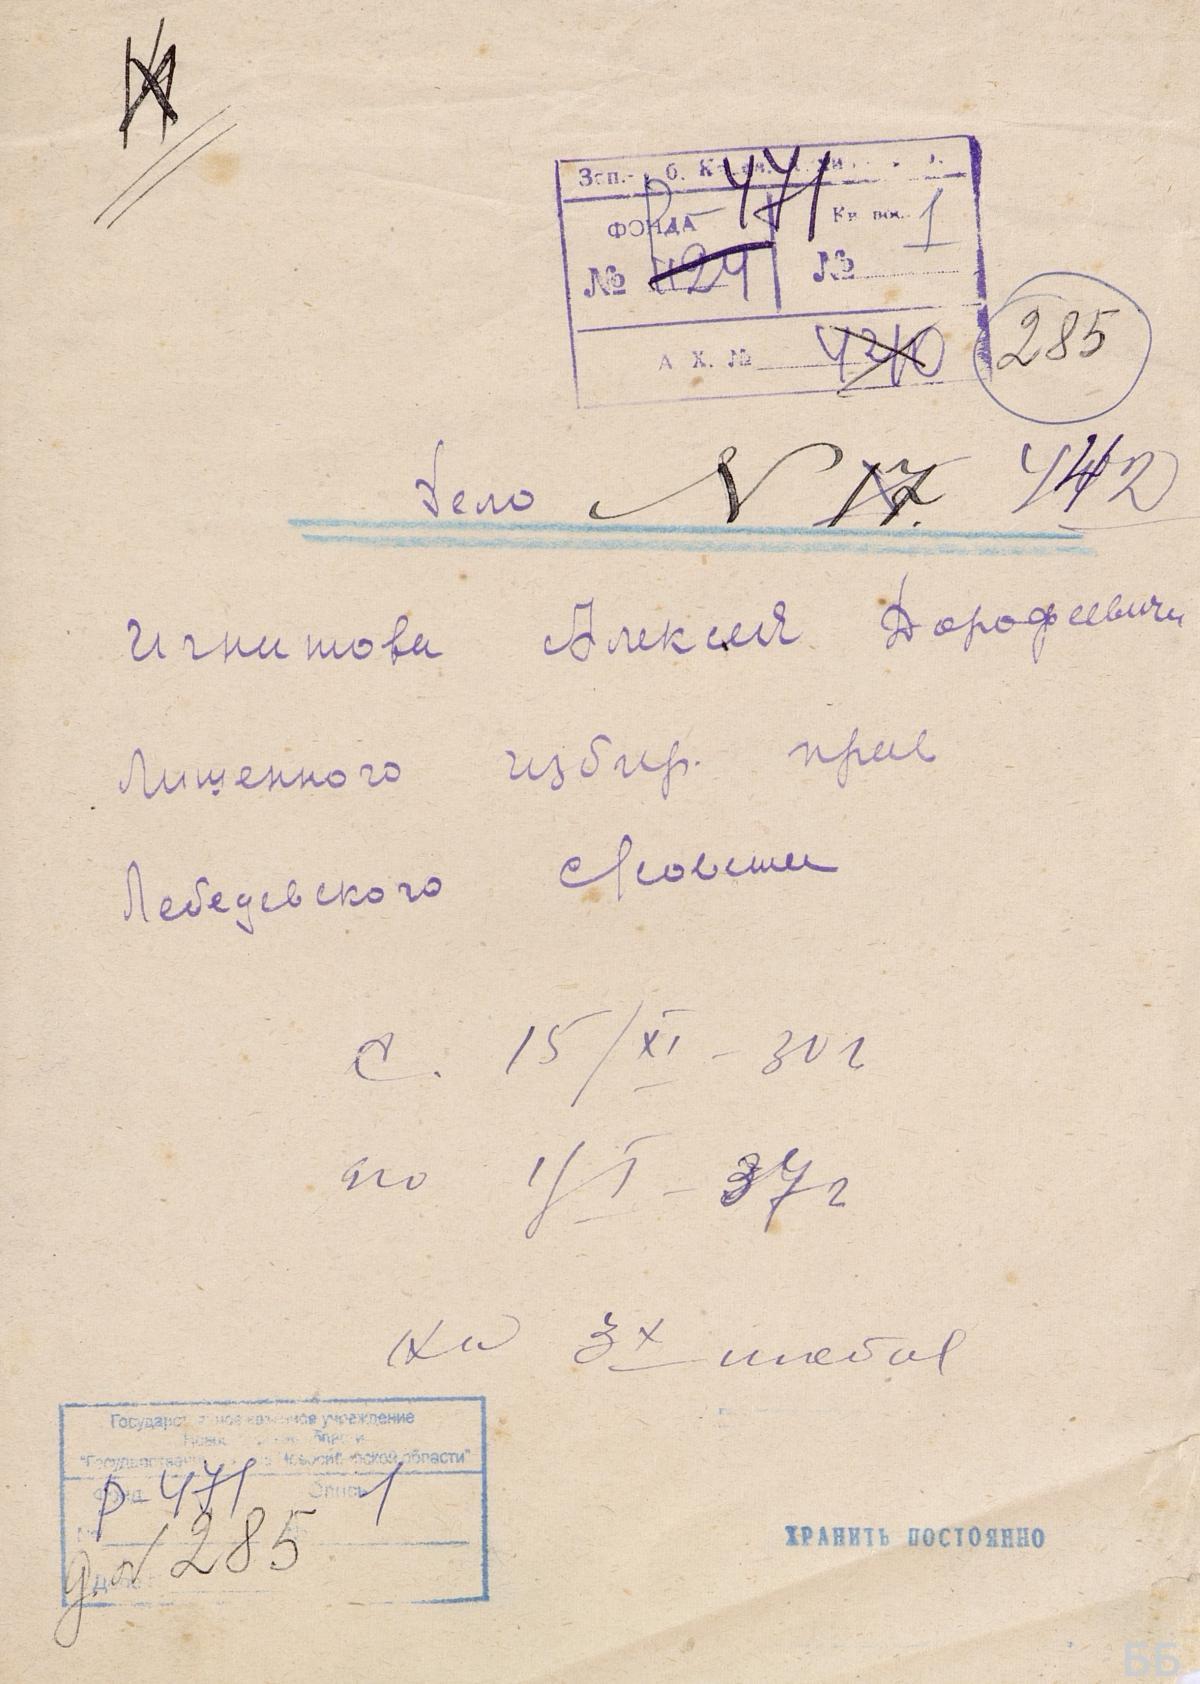 471
Зап.- б.
Р-
ФОНДА
Кр. 1
№ 424
№
А Х. №
285
Дело N 17. 442
Игнатова Алексея Дорофеевича
Лишенного избир. прав
Лебедевского с/совета
с. 15/XI - 30 г
по 1/I - 37 г
на 3х листах
Государственное казенное учреждение
Новосибирской области
"Государственный архив Новосибирской области"
Фонд Р-471 Опись 1
Дело
д. N 285
ХРАНИТЬ ПОСТОЯННО
ББ